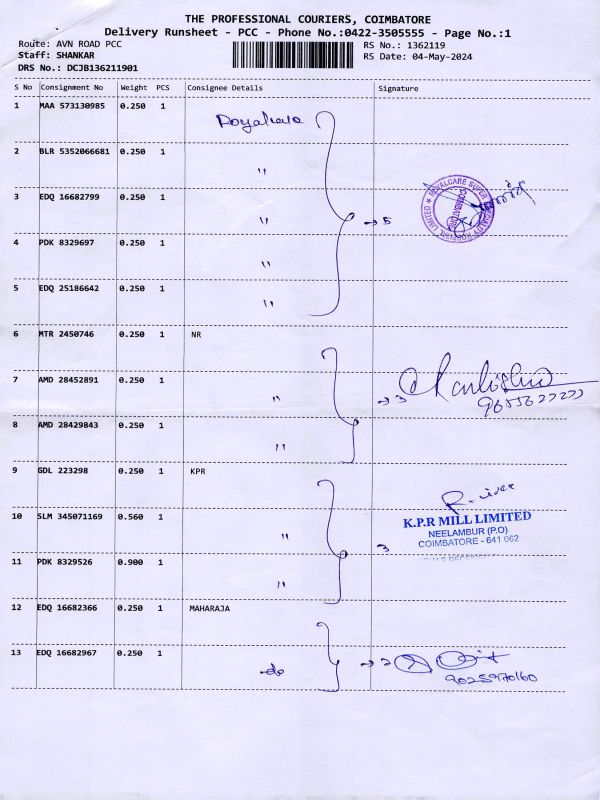 THE PROFESSIONAL COURIERS, COIMBATORE
Delivery Runsheet - PCC - Phone No.:0422-3505555 - Page No.:1
Route: AVN ROAD PCC RS No.: 1362119
Staff: SHANKAR RS Date: 04-May-2024
DRS No.: DCJB136211901
S No Consignment No Weight PCS Consignee Details Signature
1 MAA 573130985 0.250 1
2 BLR 5352066681 0.250 1 "
3 EDQ 16682799 0.250 1 " → 5
4 PDK 8329697 0.250 1 "
5 EDQ 25186642 0.250 1 "
6 MTR 2450746 0.250 1 NR
7 AMD 28452891 0.250 1 " → 3
8 AMD 28429843 0.250 1 "
9 GDL 223298 0.250 1 KPR
10 SLM 345071169 0.560 1 " 3
K.P.R MILL LIMITED
NEELAMBUR (P.O)
COIMBATORE - 641 062
11 PDK 8329526 0.900 1 "
12 EDQ 16682366 0.250 1 MAHARAJA
13 EDQ 16682967 0.250 1 -do- → 2
9025970160